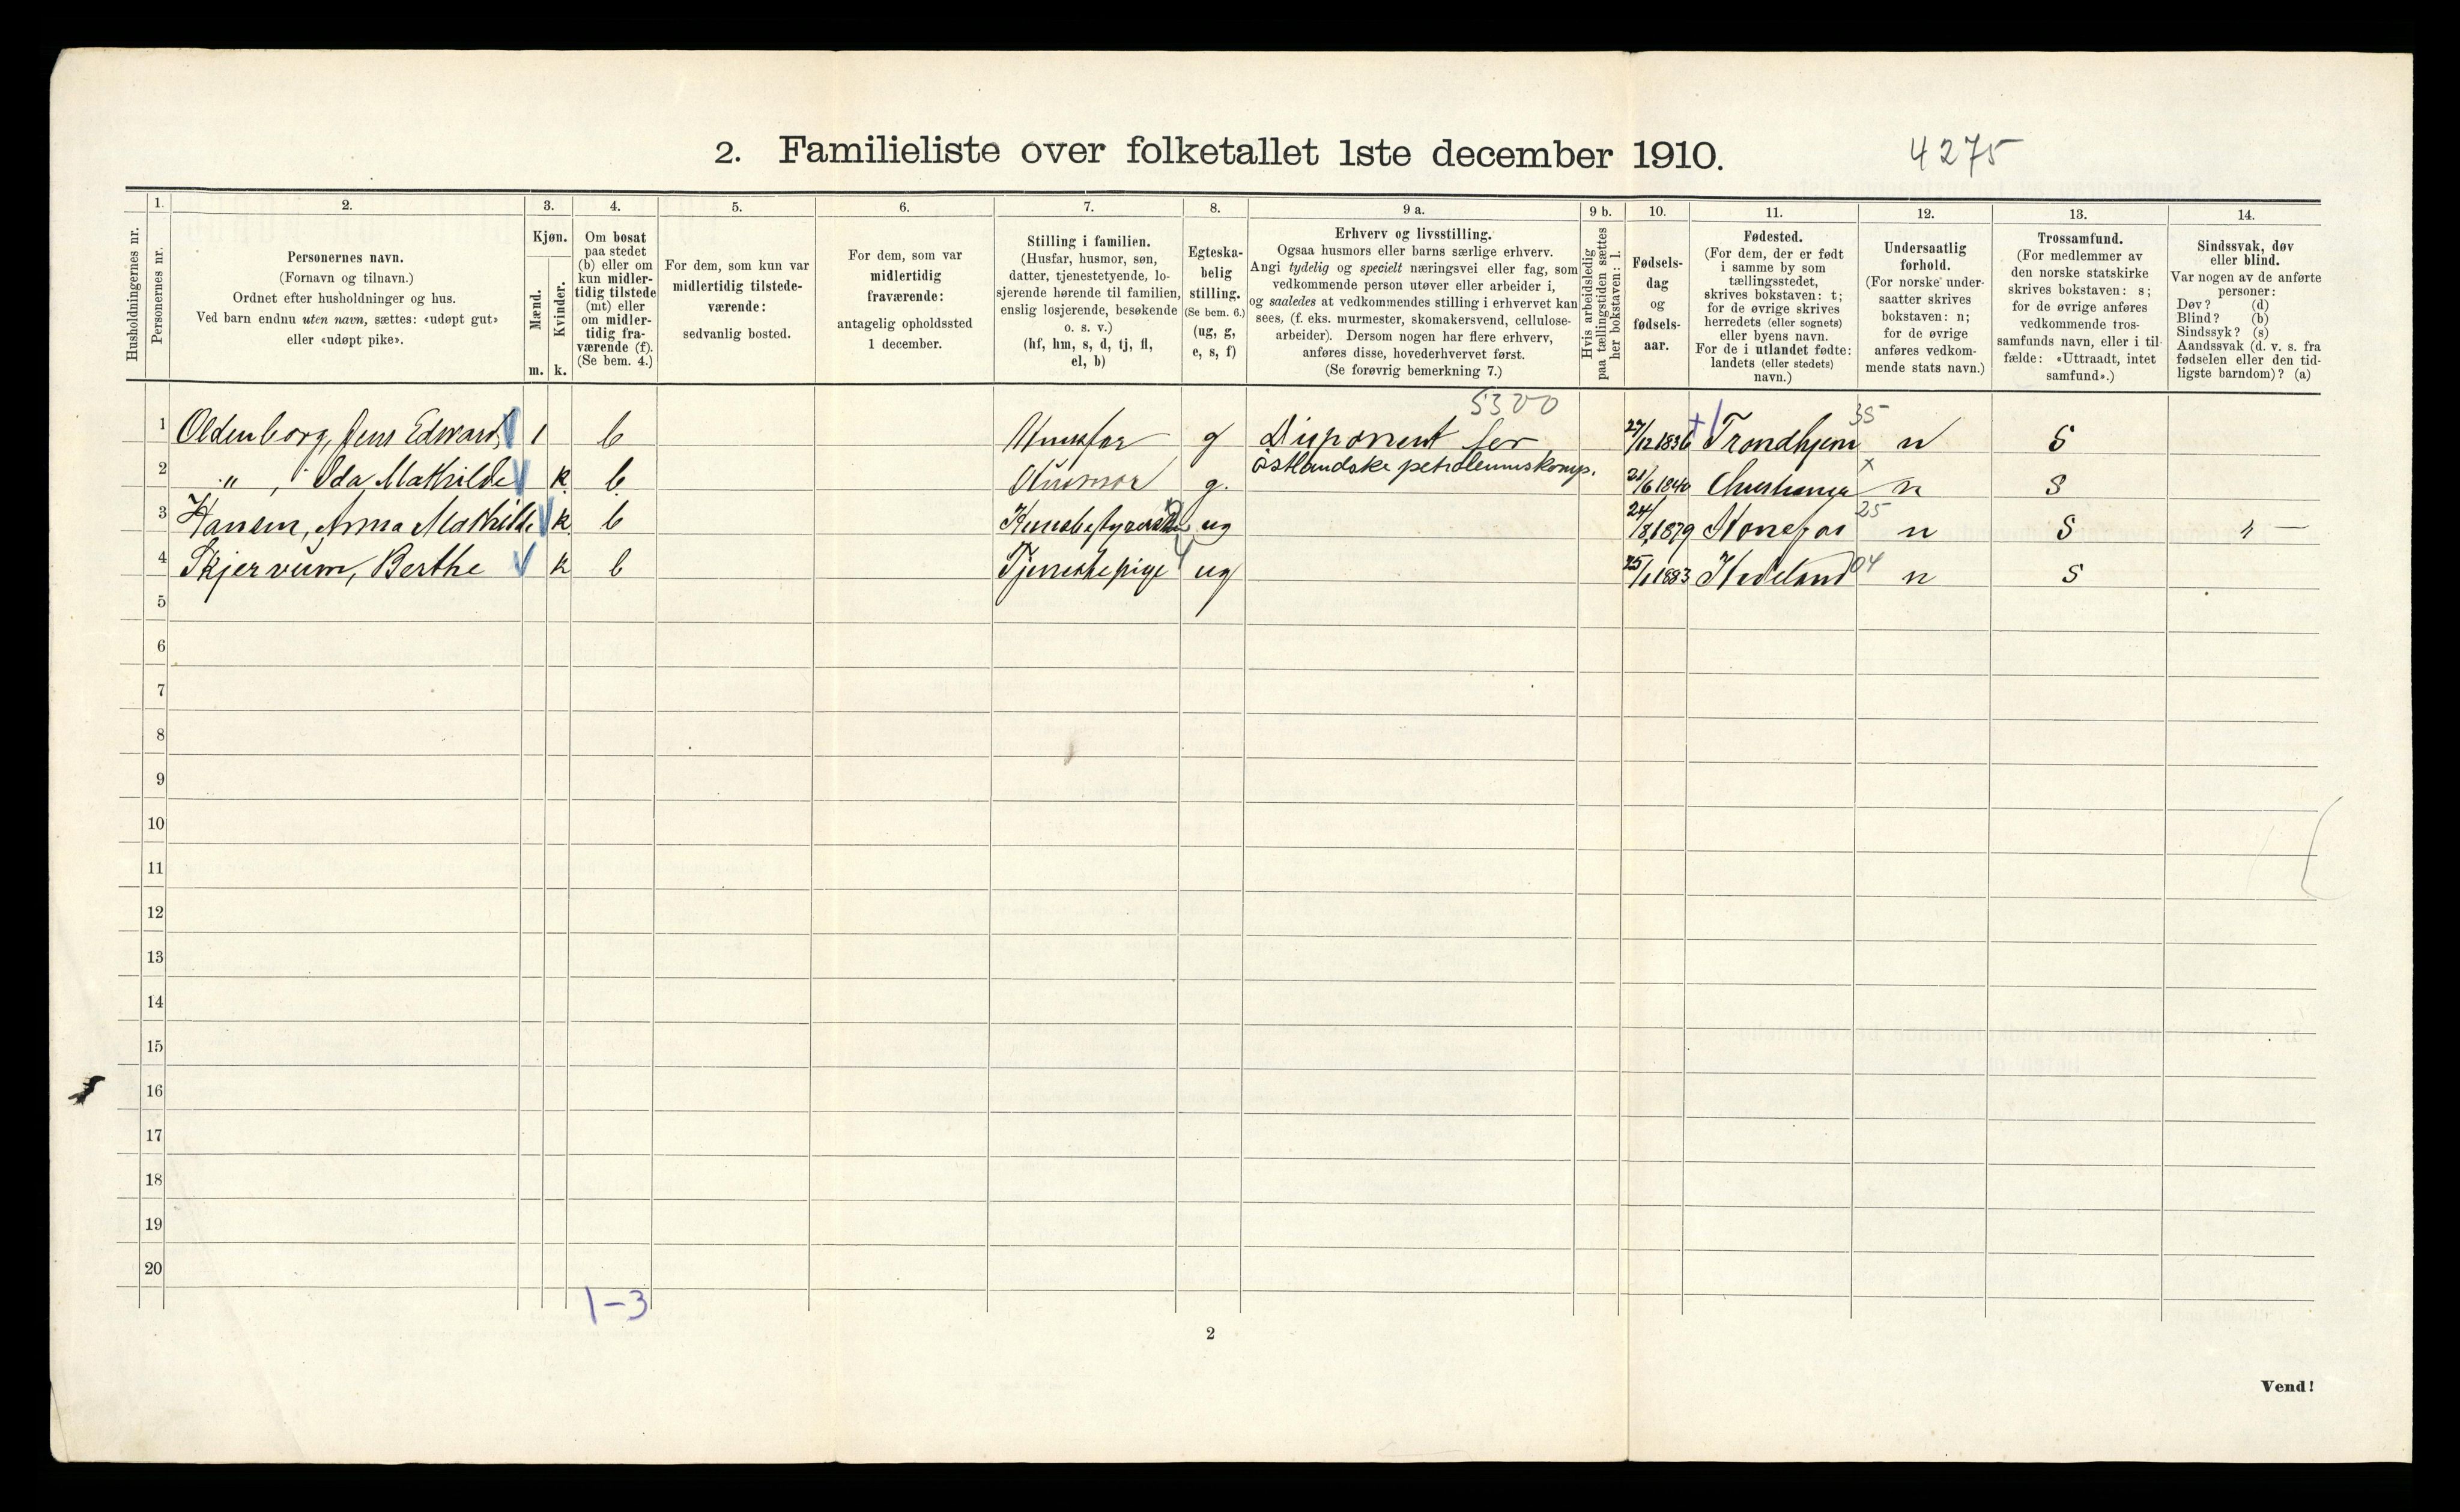 2. Familieliste over folketallet 1ste december 1910.
4275
Husholdningernes nr.
1.
Personernes nr.
2.
Personernes navn.
(Fornavn og tilnavn.)
Ordnet efter husholdninger og hus.
Ved barn endnu uten navn, sættes: «udøpt gut»
eller «udøpt pike».
3.
Kjøn.
Mænd.
Kvinder.
m. k.
4.
Om bosat
paa stedet
(b) eller om
kun midler-
tidig tilstede
(mt) eller
om midler-
tidig fra-
værende (f).
(Se bem. 4.)
5.
For dem, som kun var
midlertidig tilstede-
værende:
sedvanlig bosted.
6.
For dem, som var
midlertidig
fraværende:
antagelig opholdssted
1 december.
7.
Stilling i familien.
(Husfar, husmor, søn,
datter, tjenestetyende, lo-
sjerende hørende til familien,
enslig losjerende, besøkende
o. s. v.)
(hf, hm, s, d, tj, fl,
el, b)
8.
Egteska-
belig
stilling.
(Se bem. 6.)
(ug, g,
e, s, f)
9 a.
Erhverv og livsstilling.
Ogsaa husmors eller barns særlige erhverv.
Angi tydelig og specielt næringsvei eller fag, som
vedkommende person utøver eller arbeider i,
og saaledes at vedkommendes stilling i erhvervet kan
sees, (f. eks. murmester, skomakersvend, cellulose-
arbeider). Dersom nogen har flere erhverv,
anføres disse, hovederhvervet først.
(Se forøvrig bemerkning 7.)
9 b.
Hvis arbeidsledig
paa tællingstiden sættes
her bokstaven: l.
10.
Fødsels-
dag
og
fødsels-
aar.
11.
Fødested.
(For dem, der er født
i samme by som
tællingsstedet,
skrives bokstaven: t;
for de øvrige skrives
herredets (eller sognets)
eller byens navn.
For de i utlandet fødte:
landets (eller stedets)
navn.)
12.
Undersaatlig
forhold.
(For norske under-
saatter skrives
bokstaven: n;
for de øvrige
anføres vedkom-
mende stats navn.)
13.
Trossamfund.
(For medlemmer av
den norske statskirke
skrives bokstaven: s;
for de øvrige anføres
vedkommende tros-
samfunds navn, eller i til-
fælde: «Uttraadt, intet
samfund».)
14.
Sindssvak, døv
eller blind.
Var nogen av de anførte
personer:
Døv? (d)
Blind? (b)
Sindssyk? (s)
Aandssvak (d. v. s. fra
fødselen eller den tid-
ligste barndom)? (a)
5300 35
1 Oldenborg, Jens Edward 1 b Husfar g Disponent for 27/12 1836 Trondhjem n S
østlandske petroleumskomp.
2 " , Ida Mathilde k b Husmor g. 21/6 1840 Christiania x n S
3 Hansen, Anna Mathilde k b Husbestyrerske ug 24/8 1879 Hønefos 25 n S " —
4 Skjervum, Berthe k b Tjenestepige ug 25/1 1883 Hadeland 04 n S
5
6
7
8
9
10
11
12
13
14
15
16
17
18
19
20
1-3
2
Vend!